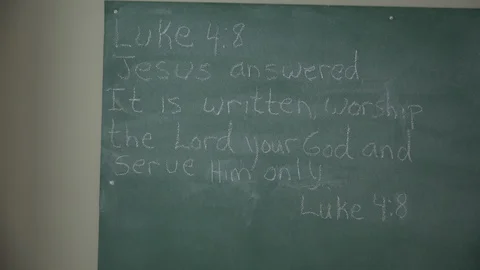 Luke 4:8
Jesus answered,
It is written, worship
the Lord your God and
serve Him only.
Luke 4:8